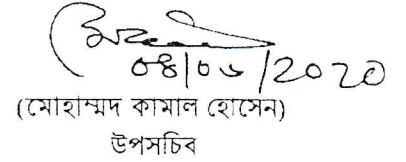 ০৪/০৬/2020
(মোহাম্মদ কামাল হোসেন)
উপসচিব